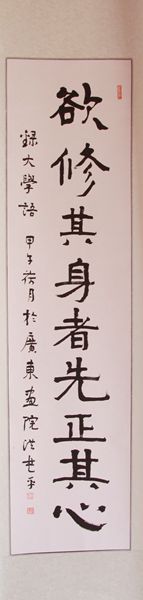 欲修其身者先正其心
錄大學語 甲午荷月於廣東畫院洪楚平